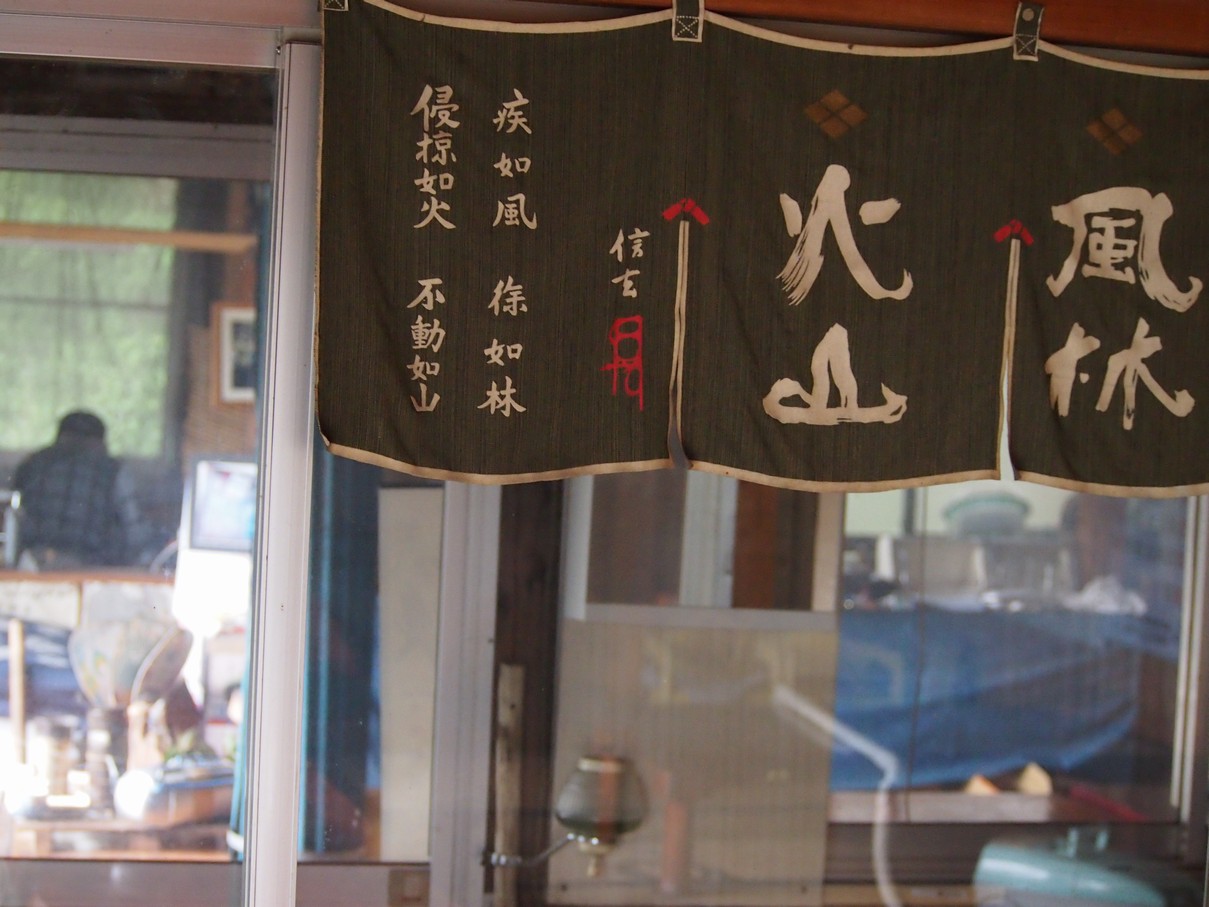 風林
火山
信玄
疾如風 徐如林
侵掠如火 不動如山